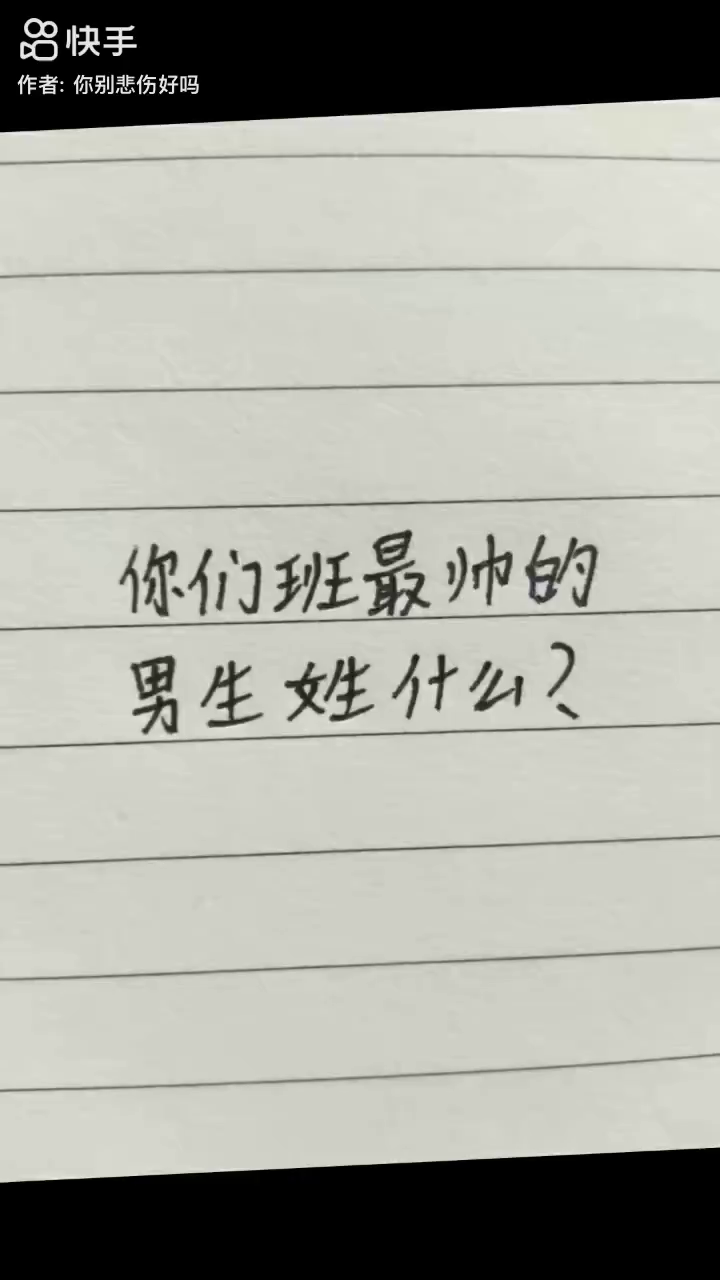 快手
作者: 你别悲伤好吗
你们班最帅的
男生姓什么?